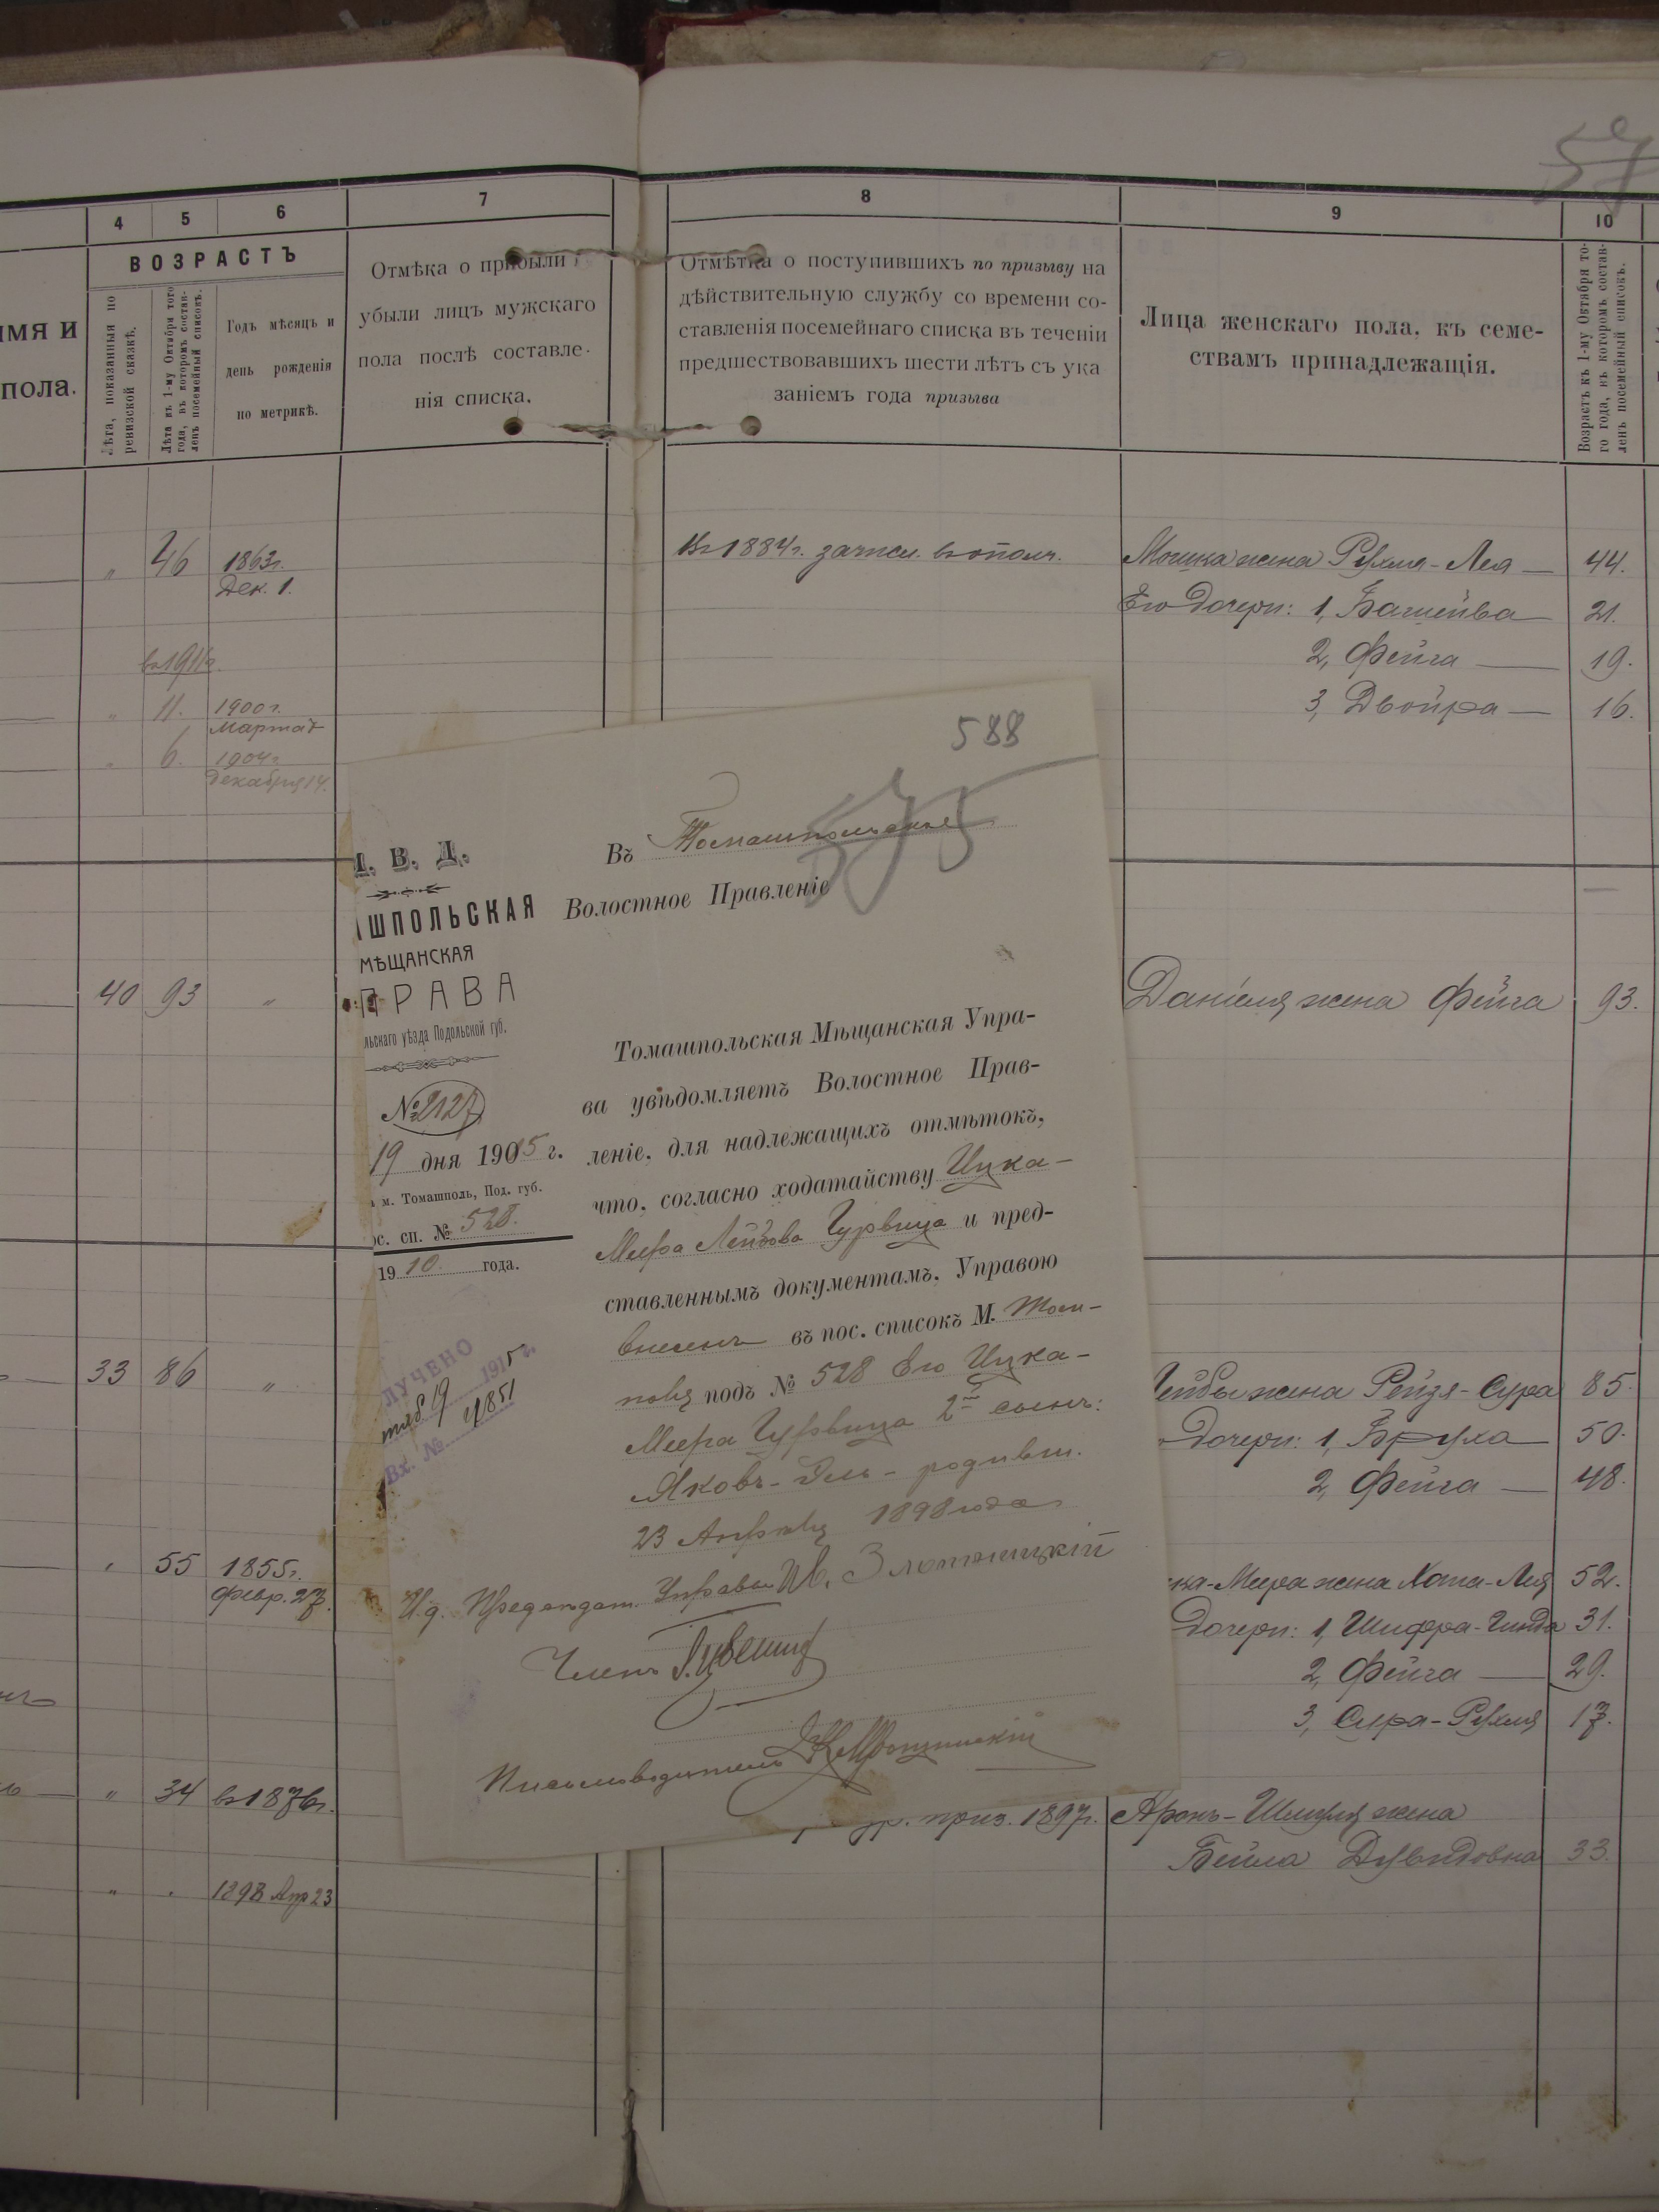 4
5
6
7
8
9
10
ИМЯ И
ПОЛА.
ВОЗРАСТЪ
Лѣта, показанныя по ревизской сказкѣ.
Лѣта къ 1-му Октября того года, въ которомъ составленъ посемейный списокъ.
Годъ мѣсяцъ и
день рожденія
по метрикѣ.
Отмѣка о прибыли
убыли лицъ мужскаго
пола послѣ составле-
нія списка.
Отмѣтка о поступившихъ по призыву на
дѣйствительную службу со времени со-
ставленія посемейнаго списка въ теченіи
предшествовавшихъ шести лѣтъ съ ука
заніемъ года призыва
Лица женскаго пола, къ семе-
ствамъ принадлежащія.
Возрастъ къ 1-му Октября то-
го года, въ которомъ состав-
ленъ посемейный списокъ.
" 46 1863г.
Дек. 1.
Въ 1884г. зачисл. в ополч.
Мошка жена Рухля-Лея — 44.
Его дочери: 1, Башейва — 21.
2, Фейга — 19.
3, Двойра — 16.
въ 1911г.
" 11. 1900г.
Марта
" 6. 1904г.
Декабря 14.
40 93 "
Даніеля жена Фейга 93.
33 86 "
Лейбы жена Рейзя-Сура 85.
Дочери: 1, Бруха — 50.
2, Фейга — 48.
" 55 1855г.
Февр. 27.
Меера жена Хана-Лея 52.
Дочери: 1, Шифра-Гинда 31.
2, Фейга — 29.
3, Сура-Рухля 17.
" 34 въ 1876г.
приз. 1897г.
Аронъ-Шмуля жена
Бейла Дувидовна 33.
" 1898 Апр 23
588
575
. В. Д.
ШПОЛЬСКАЯ
МѢЩАНСКАЯ
ПРАВА
льскаго уѣзда Подольской губ.
№ 2127
19 дня 1915 г.
м. Томашполь, Под. губ.
ос. сп. № 528.
1910. года.
ЛУЧЕНО
19 1915 г.
Вх. № 4851
Въ Томашпольское
Волостное Правленіе
Томашпольская Мѣщанская Упра-
ва увѣдомляетъ Волостное Прав-
леніе, для надлежащихъ отмѣтокъ,
что, согласно ходатайству Ицка-
Меера Лейбова Гурвица и пред-
ставленнымъ документамъ, Управою
внесенъ въ пос. списокъ М. Том-
поля подъ № 528 Его Ицка-
Меера Гурвица 2й сынъ:
Яковъ-Эль- родивш.
23 Апрѣля 1898 года
И.д. Предсѣдат. Управы Ив. Злотницкій
Членъ
Письмоводитель